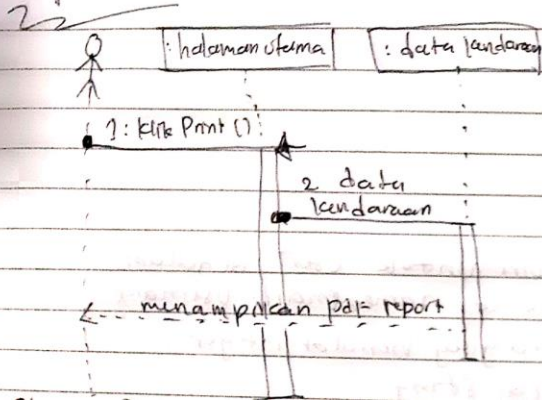 : halaman utama
: data kendaraan
1: Klik Print ()
2 data
kendaraan
menampilkan pdf report